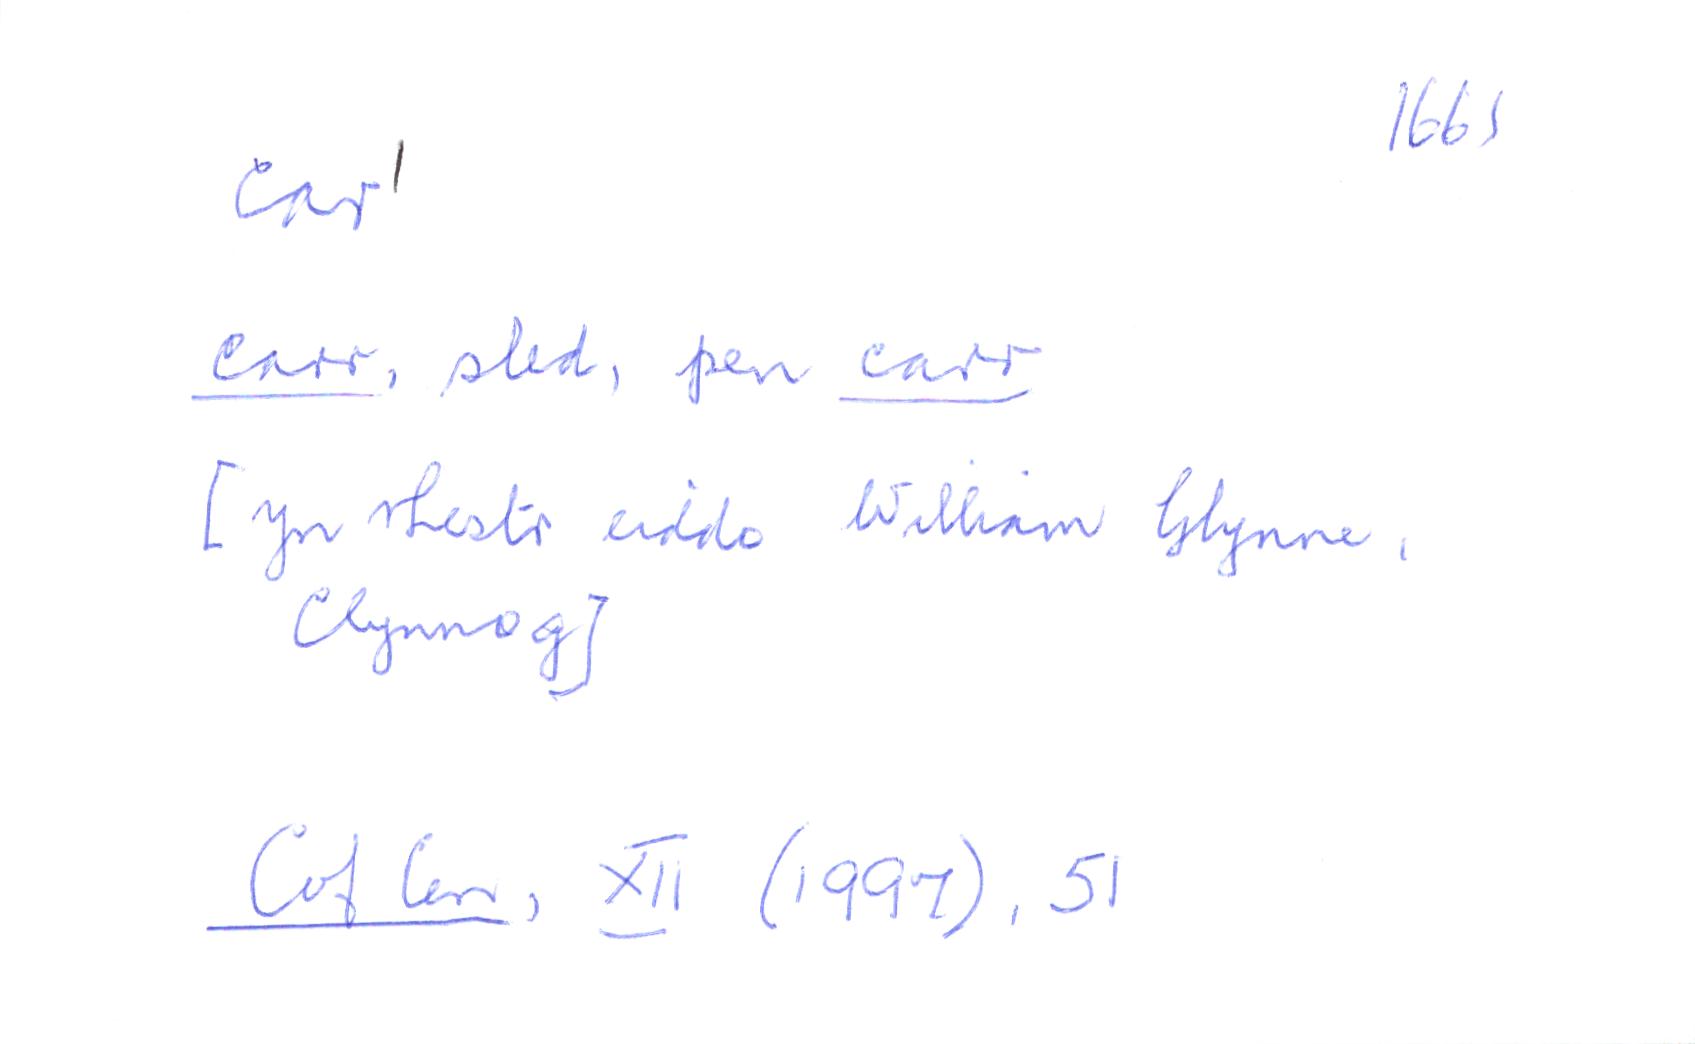 1661
car¹
carr, sled, pen carr
[yn rhestr eiddo William Glynne,
Clynnog]
Cof Cen, XII (1997), 51